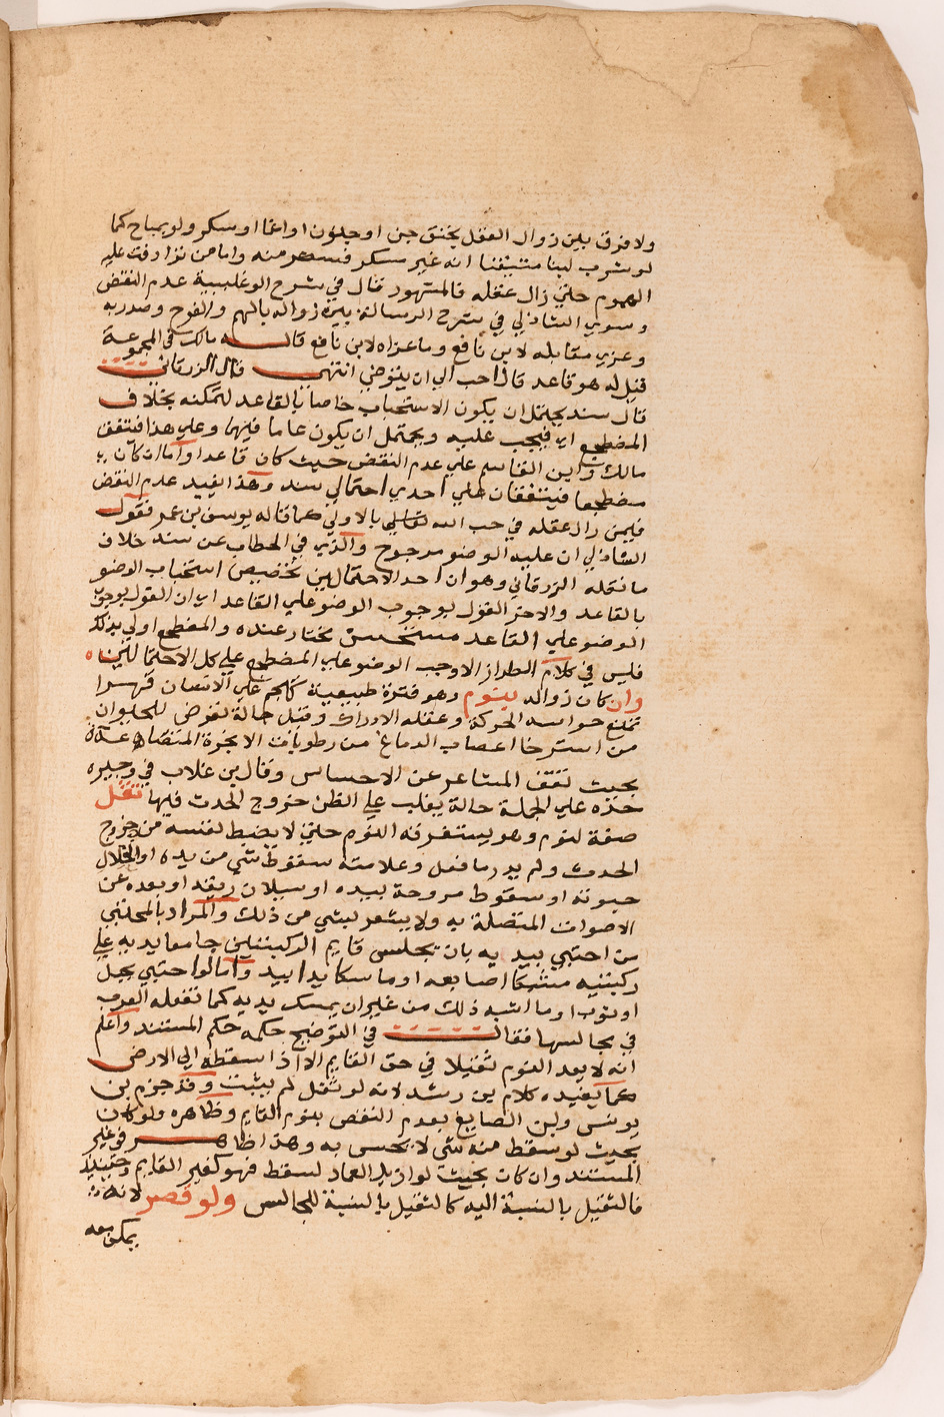 ولا فرق بين زوال العقل بخنق جن او جنون او اغما او سكر ولو بمباح كما
لو شرب لبنا متيقنا انه غير مسكر فسكر منه واما من ترادفت عليه
الهموم حتي زال عقله فالمشهور قال في شرح الوغليسية عدم النقض
وسوي الشاذلي في شرح الرسالة بين زواله بالهم والفرح وصدر به
وعزي مقابله لابن نافع وما عزاه لابن نافع قاله مالك في المجموعة
قيل له هو قاعد قال احب الي ان يتوضي انتهى قال الزرقاني
قال سند يحتمل ان يكون الاستحباب خاصا بالقاعد لتمكنه بخلاف
المضطجع اي فيجب عليه ويحتمل ان يكون عاما فيهما وعلي هذا فيتفق
مالك وابن القاسم علي عدم النقض حيث كان قاعدا واما ان كان
مضطجعا فيتفقان علي احدي احتمالي سند وهذا يفيد عدم النقض
فيمن زال عقله في حب الله تعالي بالاولي كما قاله يوسف بن عمر فقول
الشاذلي ان عليه الوضو مرجوح والذي في الحطاب عن سند خلاف
ما نقله الزرقاني وهو ان احد الاحتمالين تخصيص استحباب الوضو
بالقاعد والاخر القول بوجوب الوضو علي القاعد اي ان القول بوجوب
الوضو علي القاعد مستحسن مختار عنده والمضطجع اولي بذلك
فليس في كلام الطراز الا وجب الوضو علي المضطجع علي كل الاحتمالين
وان كان زواله بنوم وهو فترة طبيعية تهجم علي الانسان قهرا
تمنع حواسه الحركة وعقله الادراك وقيل حالة تعرض للحيوان
من استرخا اعصاب الدماغ من رطوبات الابخرة المتصاعدة
بحيث تقف المشاعر عن الاحساس وقال بن غلاب في وجيزه
حده علي الجملة حالة يغلب علي الظن خروج الحدث فيها ثقل
صفة لنوم وهو يستغرقه النوم حتي لا يضبط لنفسه من خروج
الحدث ولم يدر ما فعل وعلامته سقوط شي من يده او انحلال
حبوته او سقوط مروحة بيده او سيلان ريقه او بعده عن
الاصوات المتصلة به ولا يشعر بشي من ذلك والمراد بالمحتبي
من احتبي بيديه بان يجلس قايم الركبتين جامعا يديه علي
ركبتيه مشبكا اصابعه او ماسكا يدا بيد واما لو احتبي بحبل
او ثوب او ما اشبه ذلك من غير ان يمسك بديه كما تفعله العرب
في مجالسها فقال في التوضيح حكمه حكم المستند واعلم
انه لا يعد النوم ثقيلا في حق القايم الا اذا سقطه الي الارض
كما يفيده كلام بن رشد لانه لو ثقل لم يثبت وقد جزم بن
يونس وابن الصايغ بعدم النقض بنوم القايم وظاهره ولو كان
بحيث لو سقط منه شي لا يحس به وهذا ظاهر في غير
المستند وان كان بحيث لو ازيل العماد لسقط فهو كغير القايم وحينيذ
فالثقيل بالنسبة اليه كالثقيل بالنسبة للجالس ولو قصر لانه
يمكن معه